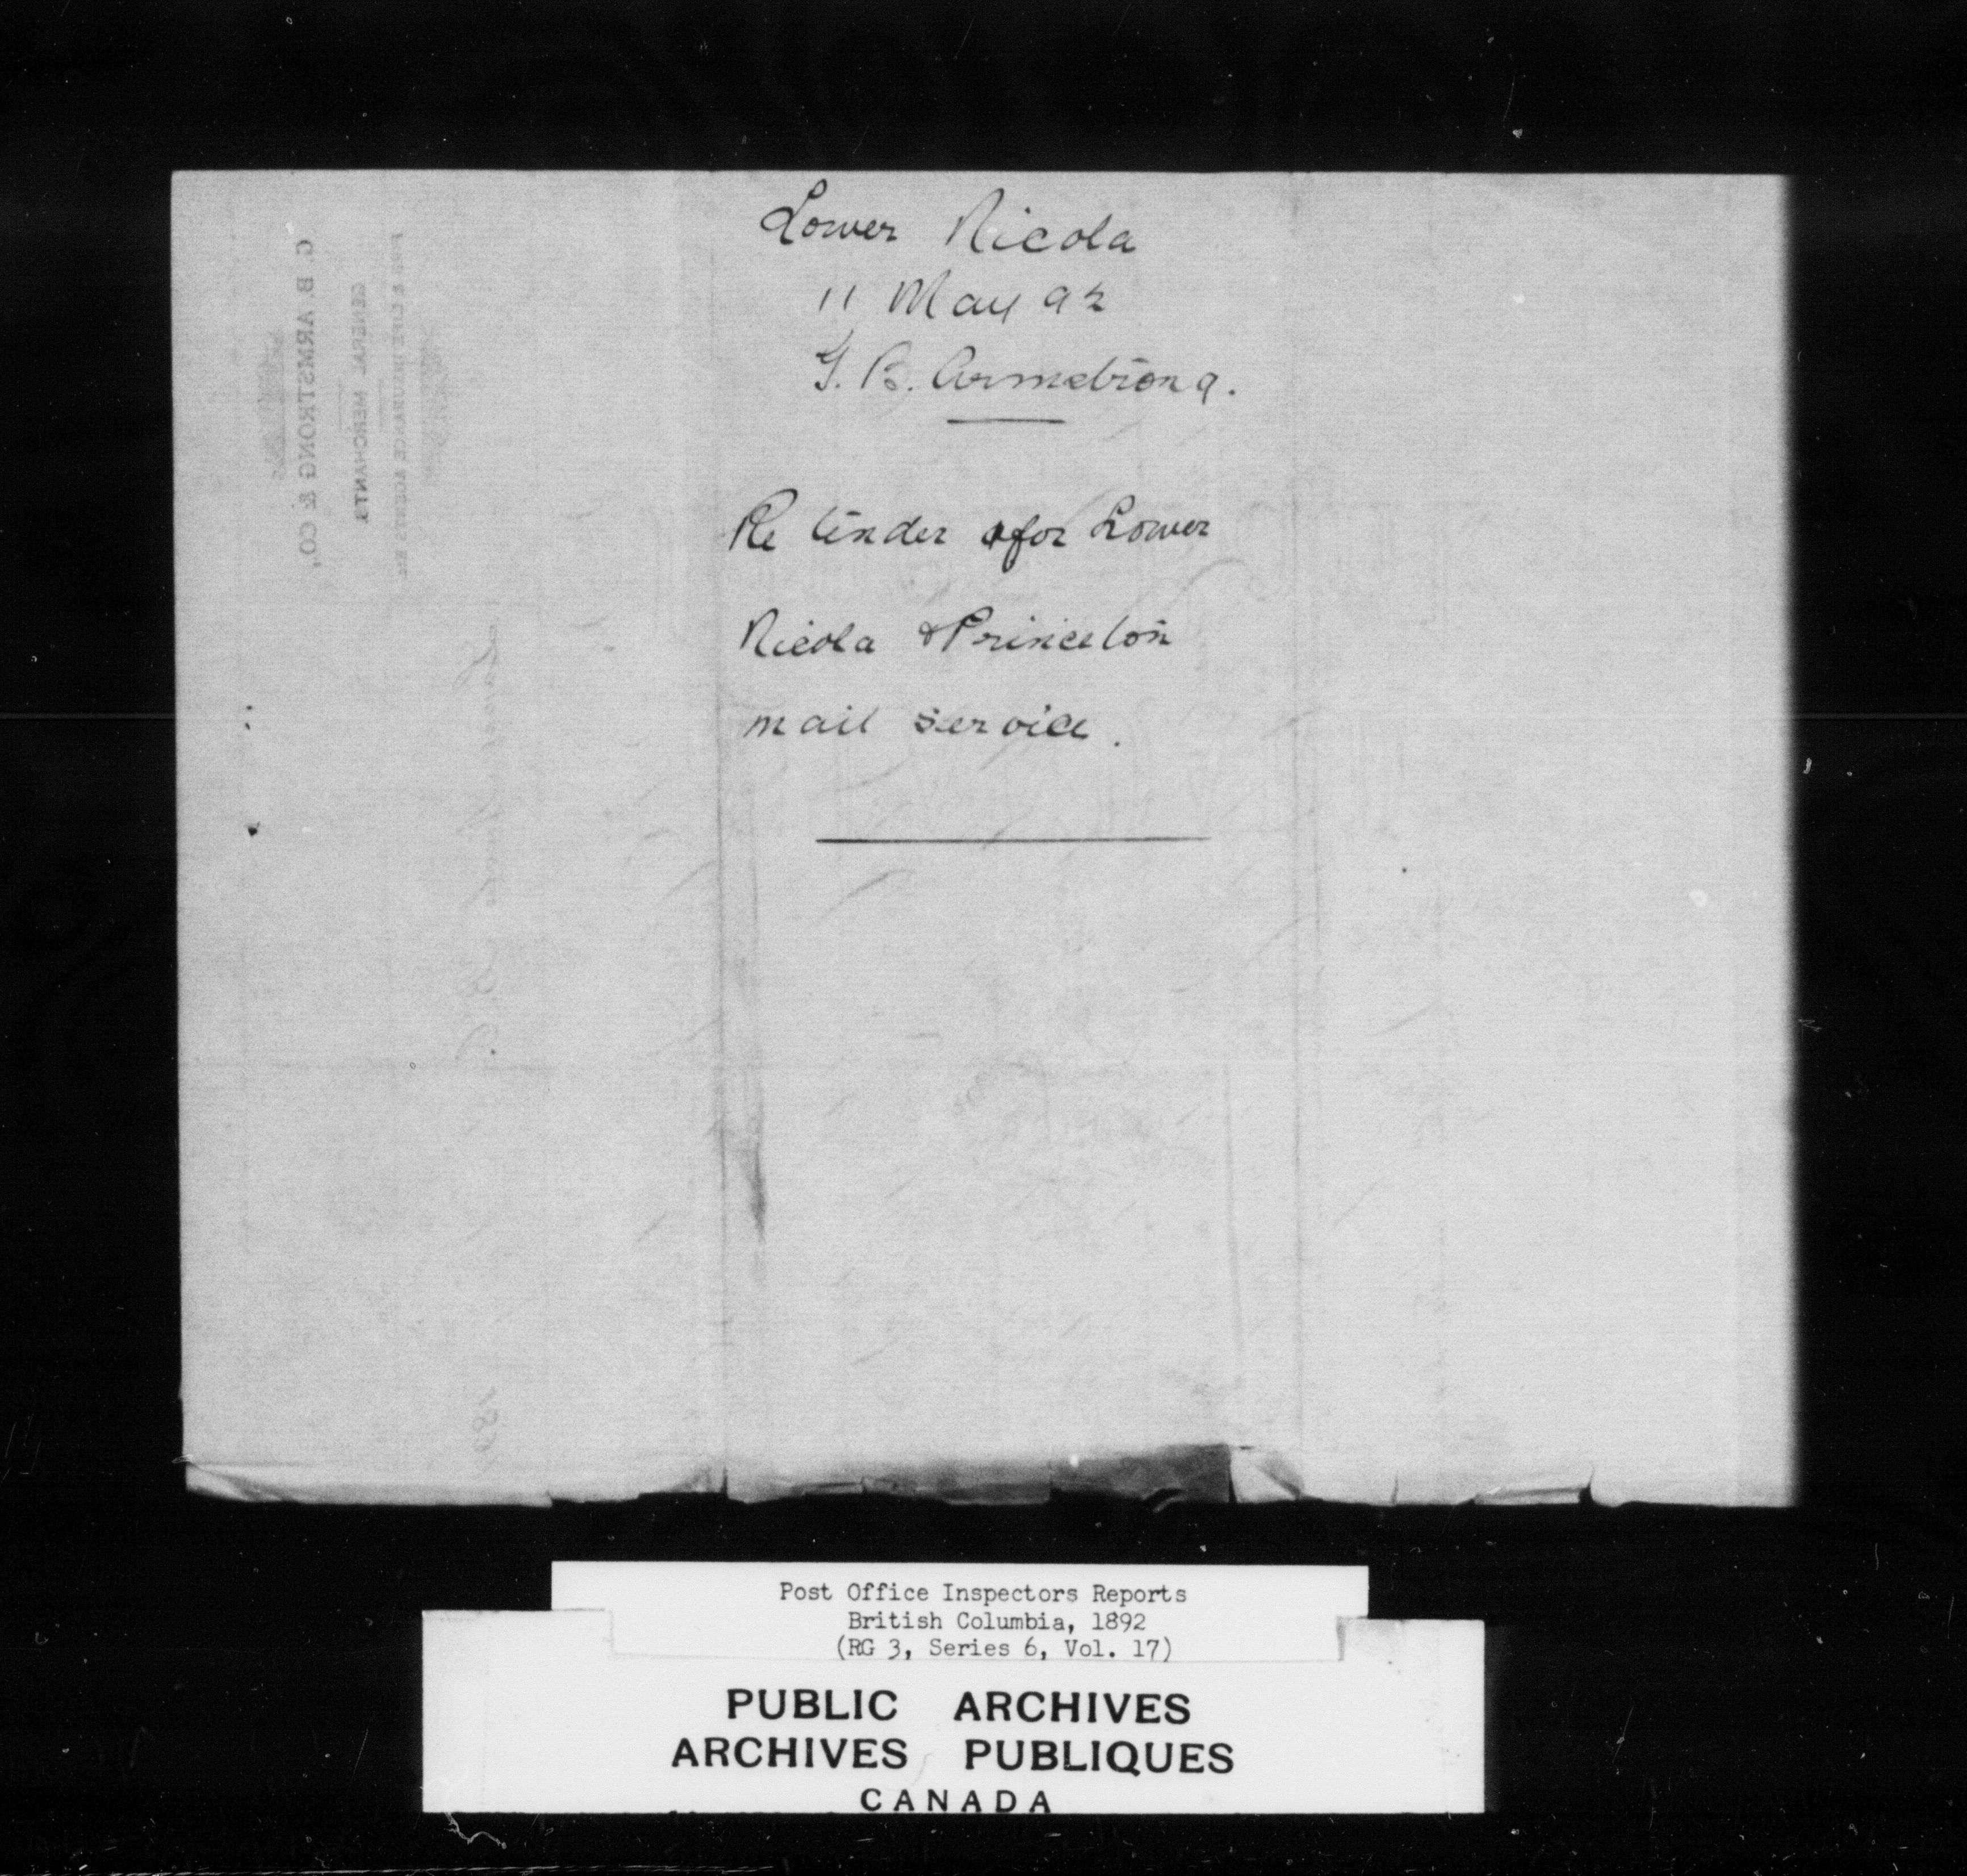 Lower Nicola
11 May 92
G. B. Armstrong.
Re tender for Lower
Nicola & Princeton
mail service.
G. B. ARMSTRONG & CO,
GENERAL MERCHANTS
FIRE & LIFE INSURANCE AGENTS Etc
Lower Nicola B.C.
189
Post Office Inspectors Reports
British Columbia, 1892
(RG 3, Series 6, Vol. 17)
PUBLIC ARCHIVES
ARCHIVES PUBLIQUES
CANADA